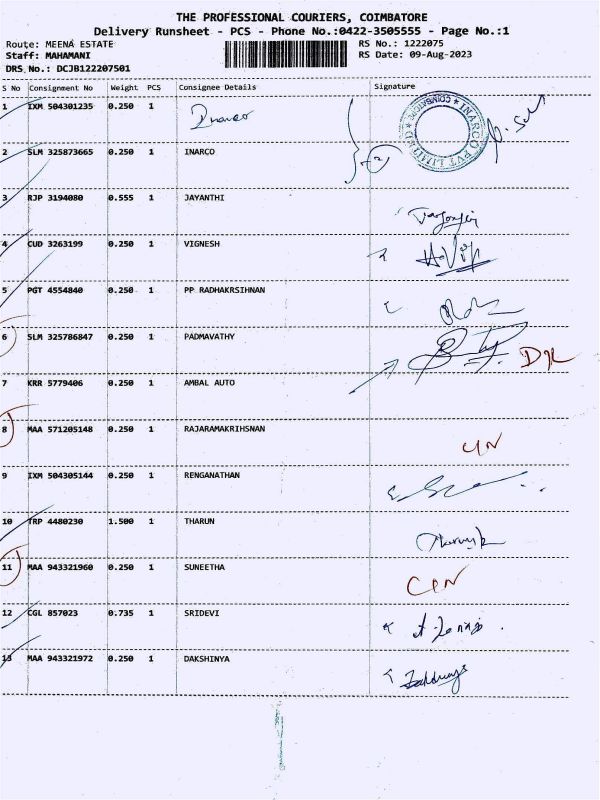 THE PROFESSIONAL COURIERS, COIMBATORE
Delivery Runsheet - PCS - Phone No.:0422-3505555 - Page No.:1
Route: MEENA ESTATE RS No.: 1222075
Staff: MAHAMANI RS Date: 09-Aug-2023
DRS No.: DCJB122207501
S No Consignment No Weight PCS Consignee Details Signature
1 IXM 504301235 0.250 1 Inarco
INARCO PVT LIMITED * COIMBATORE *
2 SLM 325873665 0.250 1 INARCO
3 RJP 3194080 0.555 1 JAYANTHI
4 CUD 3263199 0.250 1 VIGNESH
5 PGT 4554840 0.250 1 PP RADHAKRSIHNAN
6 SLM 325786847 0.250 1 PADMAVATHY
7 KRR 5779406 0.250 1 AMBAL AUTO
8 MAA 571205148 0.250 1 RAJARAMAKRIHSNAN
9 IXM 504305144 0.250 1 RENGANATHAN
10 TRP 4480230 1.500 1 THARUN
11 MAA 943321960 0.250 1 SUNEETHA
12 CGL 857023 0.735 1 SRIDEVI
13 MAA 943321972 0.250 1 DAKSHINYA